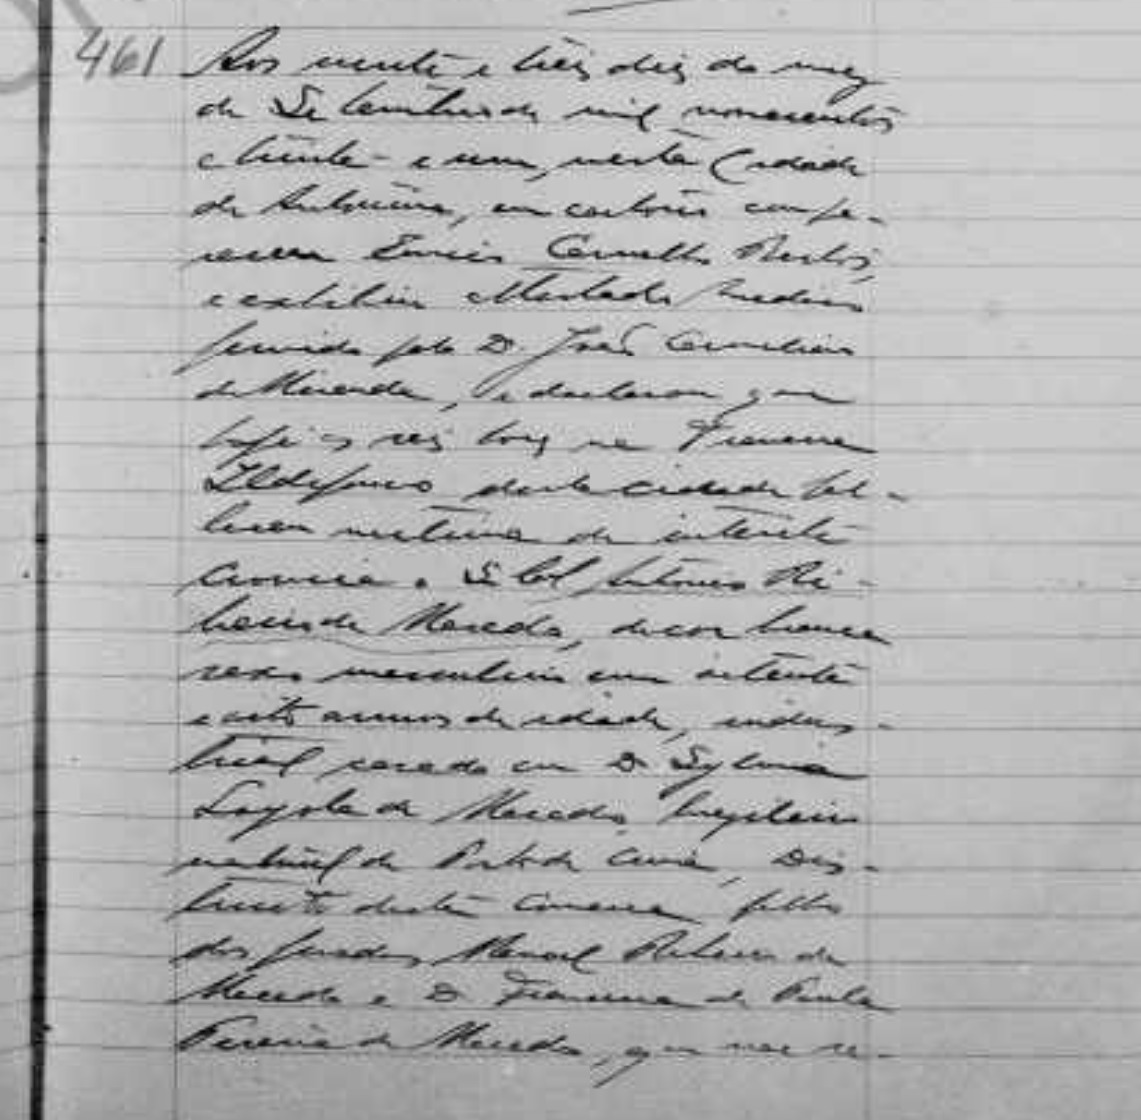 461 Aos vinte e treis dias do mez
de Setembro de mil novecentos
e trinta e um, nesta Cidade
de Antonina, em cartorio compa-
receu Carvalho
e exhibiu Attestado medico
firmado pelo Dr. João
de Miranda, e declarou que
hoje as seis horas na Travessa
Ildefonso desta cidade fal-
leceu victima de
cronica o Sr. Cel Antonio Ri-
beiro de Macedo, de cor branca
sexo masculino com setenta
e oito annos de edade, indus-
trial casado com D. Sylvina
Loyola de Macedo, brazileiro
natural de Porto de Cima, Dis-
tricto desta Comarca, filho
dos finados Manoel Ribeiro de
Macedo e D. Francisca de Paula
Pereira de Macedo, que nas re-